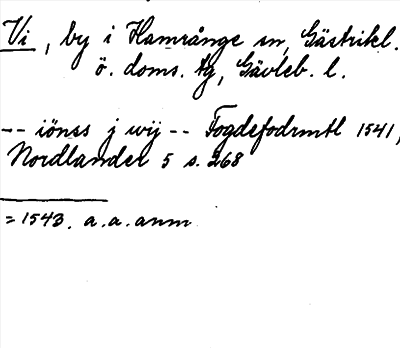 Vi, by i Hamrånge sn, Gästrikl.
ö. doms. tg, Gävleb. l.
-- iönss j wij -- Fogdefodrmtl 1541,
Nordlander 5 s. 268
= 1543. a.a. anm